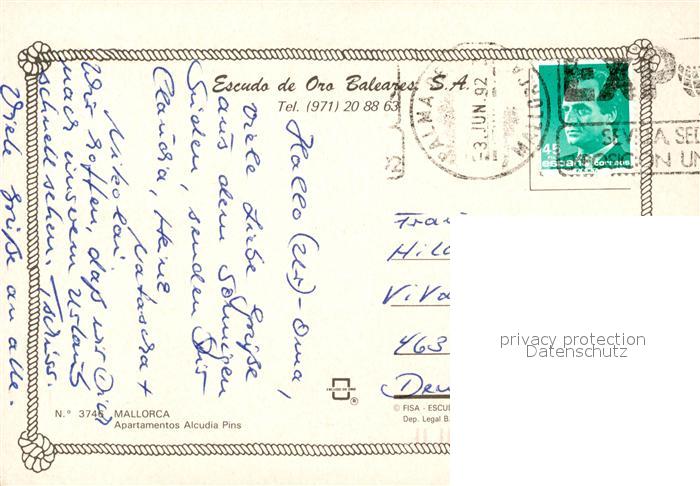 Escudo de Oro Baleares, S.A.
Tel. (971) 20 88 63
Hallo (Ur)-Oma,
viele liebe Grüße
aus dem sonnigen
Süden, senden Dir
Claudia, Heinz
Natascha +
Nikolai
Wir hoffen, daß wir Dich
nach unserem Urlaub
schnell sehen. Tschüss.
Viele Grüße an alle.
PALMA
3 JUN. 92
MALLORCA
EXPO
SEVILLA SEDE
45
españa CORREOS
Hil
Viva
463
N.º 3746 MALLORCA
Apartamentos Alcudia Pins
ESCUDO DE ORO
®
© FISA - ESCU
Dep. Legal B.
privacy protection
Datenschutz